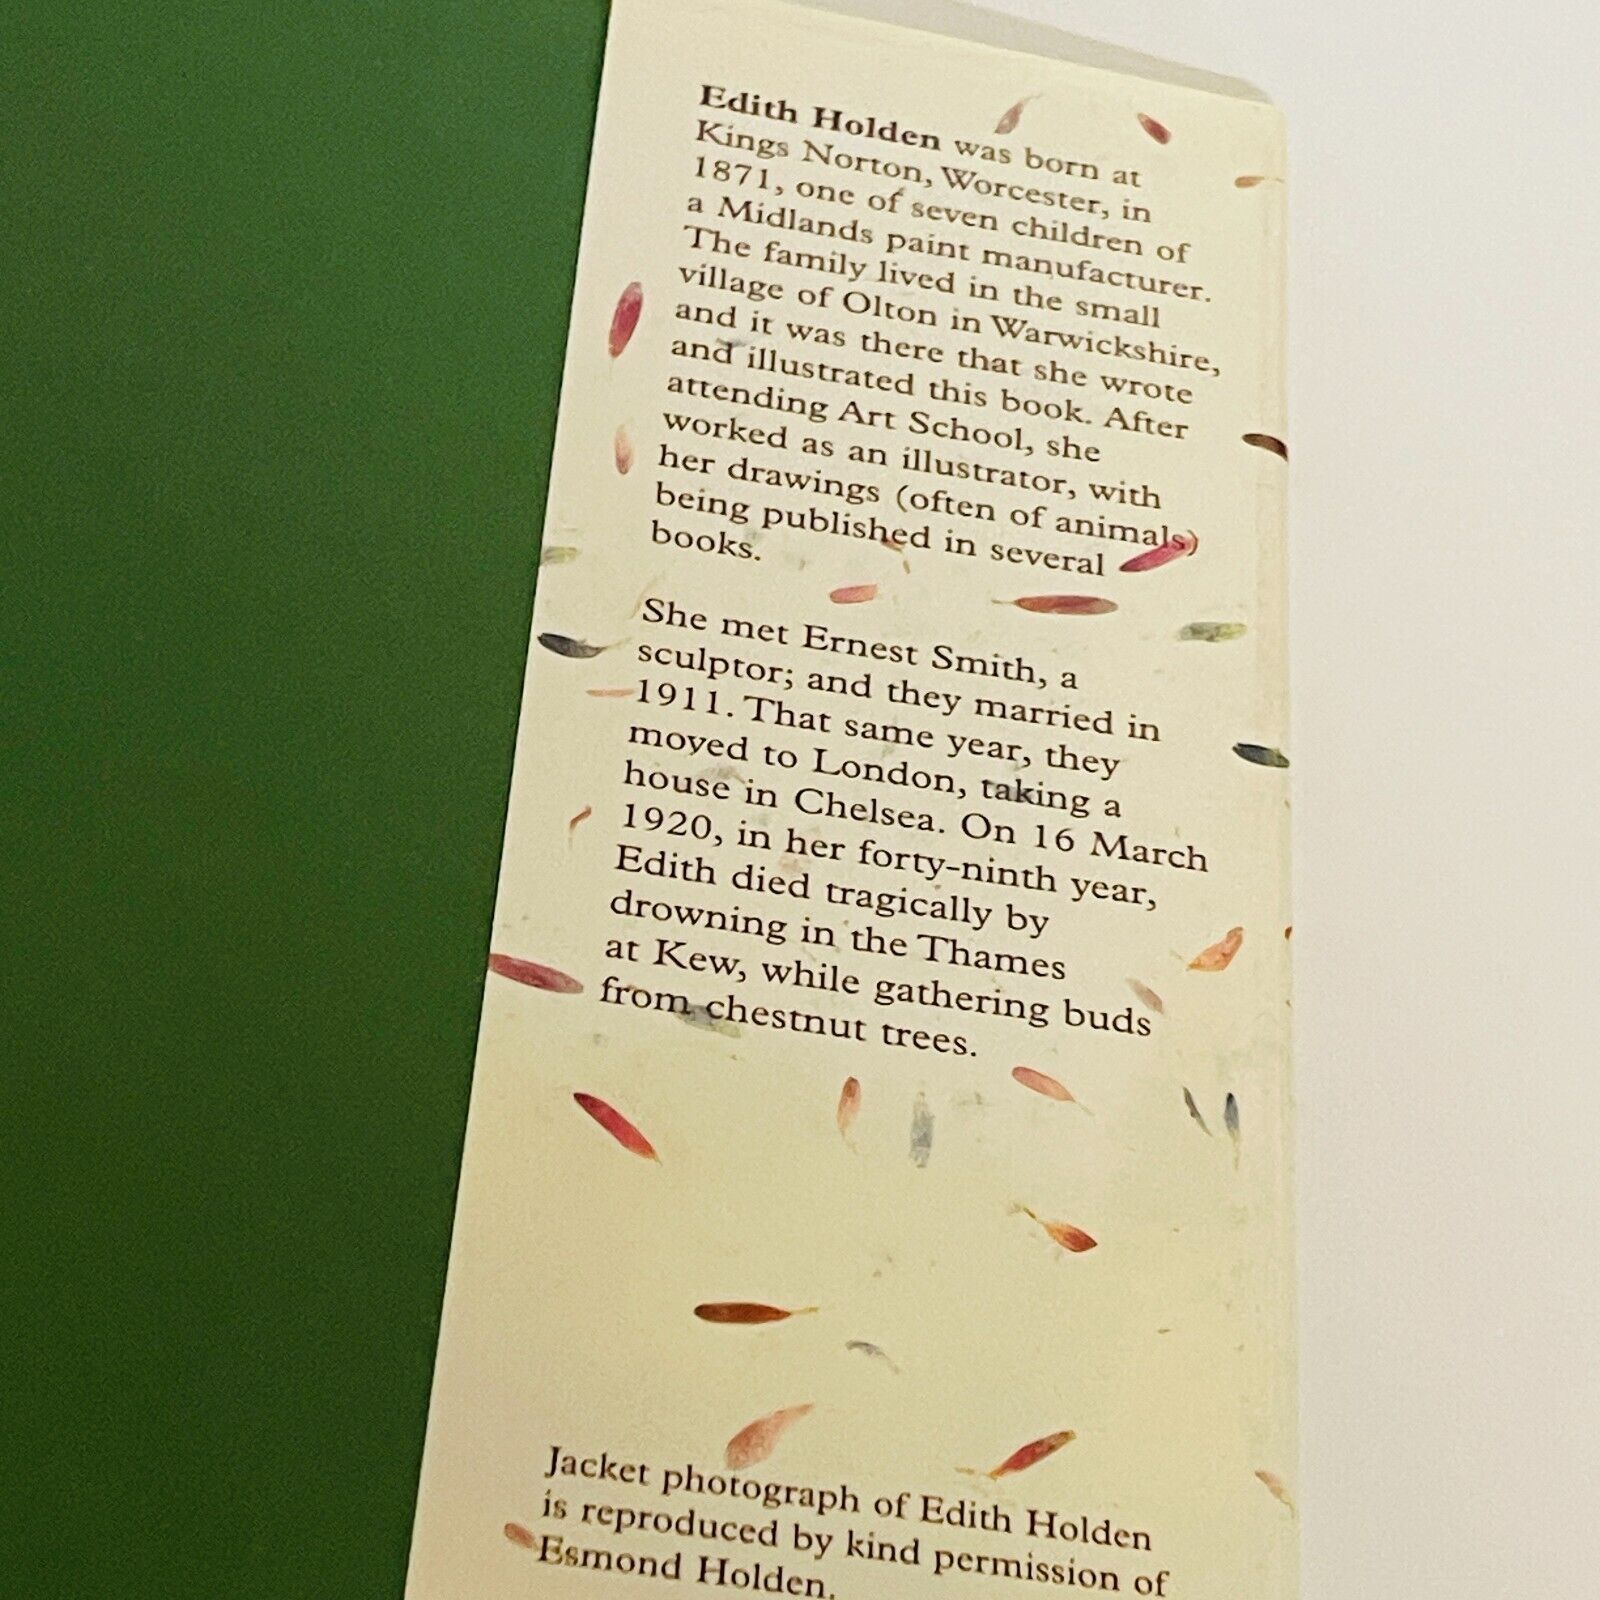 Edith Holden was born at
Kings Norton, Worcester, in
1871, one of seven children of
a Midlands paint manufacturer.
The family lived in the small
village of Olton in Warwickshire,
and it was there that she wrote
and illustrated this book. After
attending Art School, she
worked as an illustrator, with
her drawings (often of animals)
being published in several
books.
She met Ernest Smith, a
sculptor; and they married in
1911. That same year, they
moved to London, taking a
house in Chelsea. On 16 March
1920, in her forty-ninth year,
Edith died tragically by
drowning in the Thames
at Kew, while gathering buds
from chestnut trees.
Jacket photograph of Edith Holden
is reproduced by kind permission of
Esmond Holden.